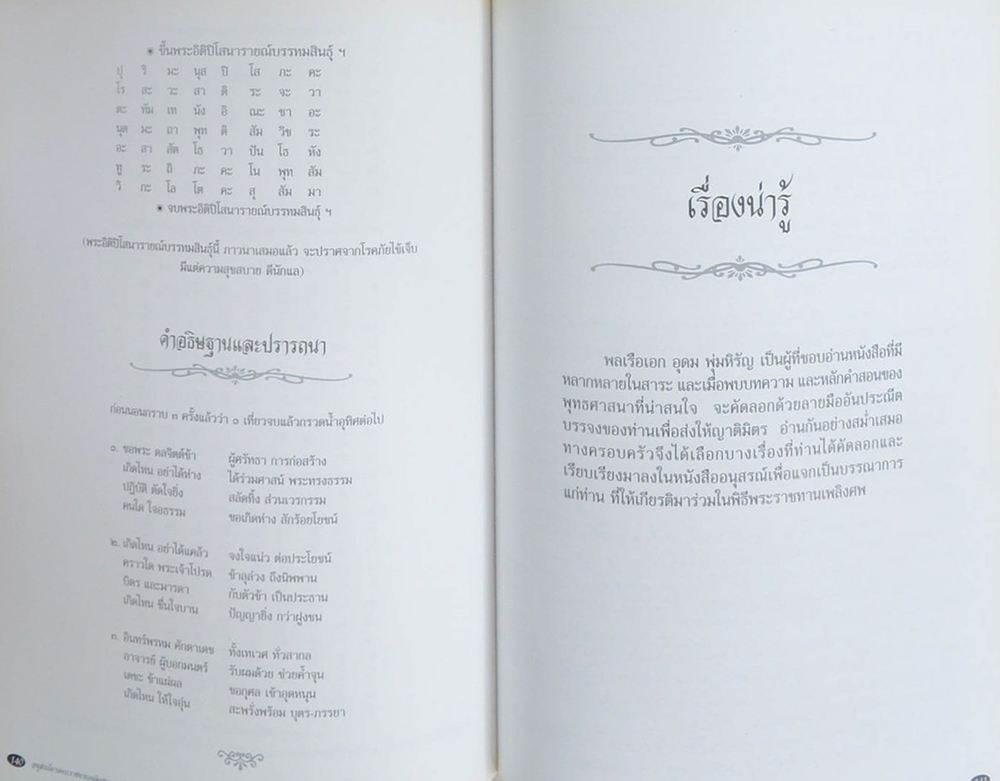 ✷ ขึ้นพระอิติปิโสนารายณ์บรรทมสินธุ์ ฯ
ปุ ริ มะ นุส ปิ โส ภะ คะ
โร สะ วะ สา ติ ระ จะ วา
ตะ ทัม เท นัง อิ ณะ ชา อะ
นุต มะ ถา พุท ติ สัม วิช ระ
อะ สา สัต โธ วา ปัน โธ หัง
ทู ระ ถิ ภะ คะ โน พุท สัม
วิ กะ โล โต คะ สุ สัม มา
✷ จบพระอิติปิโสนารายณ์บรรทมสินธุ์ ฯ
(พระอิติปิโสนารายณ์บรรทมสินธุ์นี้ ภาวนาเสมอแล้ว จะปราศจากโรคภัยไข้เจ็บ
มีแต่ความสุขสบาย ดีนักแล)
คำอธิษฐานและปรารถนา
ก่อนนอนกราบ ๓ ครั้งแล้วว่า ๑ เที่ยวจบแล้วกรวดน้ำอุทิศต่อไป
๑. ขอพระ ดลจิตต์ข้า ผู้ศรัทธา การก่อสร้าง
เกิดไหน อย่าได้ห่าง ได้ร่วมศาสน์ พระทรงธรรม
ปฏิบัติ ตัดใจยิ่ง สลัดทิ้ง ส่วนเวรกรรม
คนใด ใจอธรรม ขอเกิดห่าง สักร้อยโยชน์
๒. เกิดไหน อย่าได้แคล้ว จงใจแน่ว ต่อประโยชน์
คราวใด พระเจ้าโปรด ข้าลุล่วง ถึงนิพพาน
บิดร และมารดา กับตัวข้า เป็นประธาน
เกิดไหน ชื่นใจบาน ปัญญายิ่ง กว่าฝูงชน
๓. อินทร์พรหม ศักดาเดช ทั้งเทเวศ ทั่วสากล
อาจารย์ ผู้บอกมนตร์ รับผมด้วย ช่วยค้ำจุน
เดชะ ข้าแผ่ผล ขอกุศล เข้าอุดหนุน
เกิดไหน ให้ใจอุ่น สะพรั่งพร้อม บุตร-ภรรยา
140
เรื่องน่ารู้
พลเรือเอก อุดม พุ่มหิรัญ เป็นผู้ที่ชอบอ่านหนังสือที่มี
หลากหลายในสาระ และเมื่อพบบทความ และหลักคำสอนของ
พุทธศาสนาที่น่าสนใจ จะคัดลอกด้วยลายมืออันประณีต
บรรจงของท่านเพื่อส่งให้ญาติมิตร อ่านกันอย่างสม่ำเสมอ
ทางครอบครัวจึงได้เลือกบางเรื่องที่ท่านได้คัดลอกและ
เรียบเรียงมาลงในหนังสืออนุสรณ์เพื่อแจกเป็นบรรณาการ
แก่ท่าน ที่ให้เกียรติมาร่วมในพิธีพระราชทานเพลิงศพ